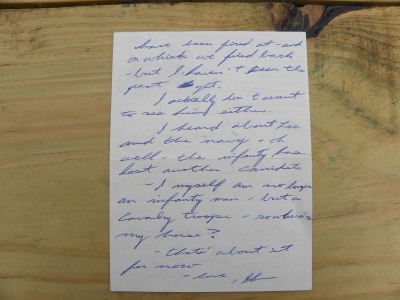 have been fired at - and
on which we fired back
- but I haven't seen the
great yet.
I actually don't want
to see him either.
I heard about Lee
and the navy - oh
well - the infantry has
lost another candidate
- I myself am no longer
an infantry man - but a
Cavalry trooper - so where's
my horse?
- that's about it
for now
- love,